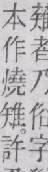 者乃俗字
本作燒雉。許